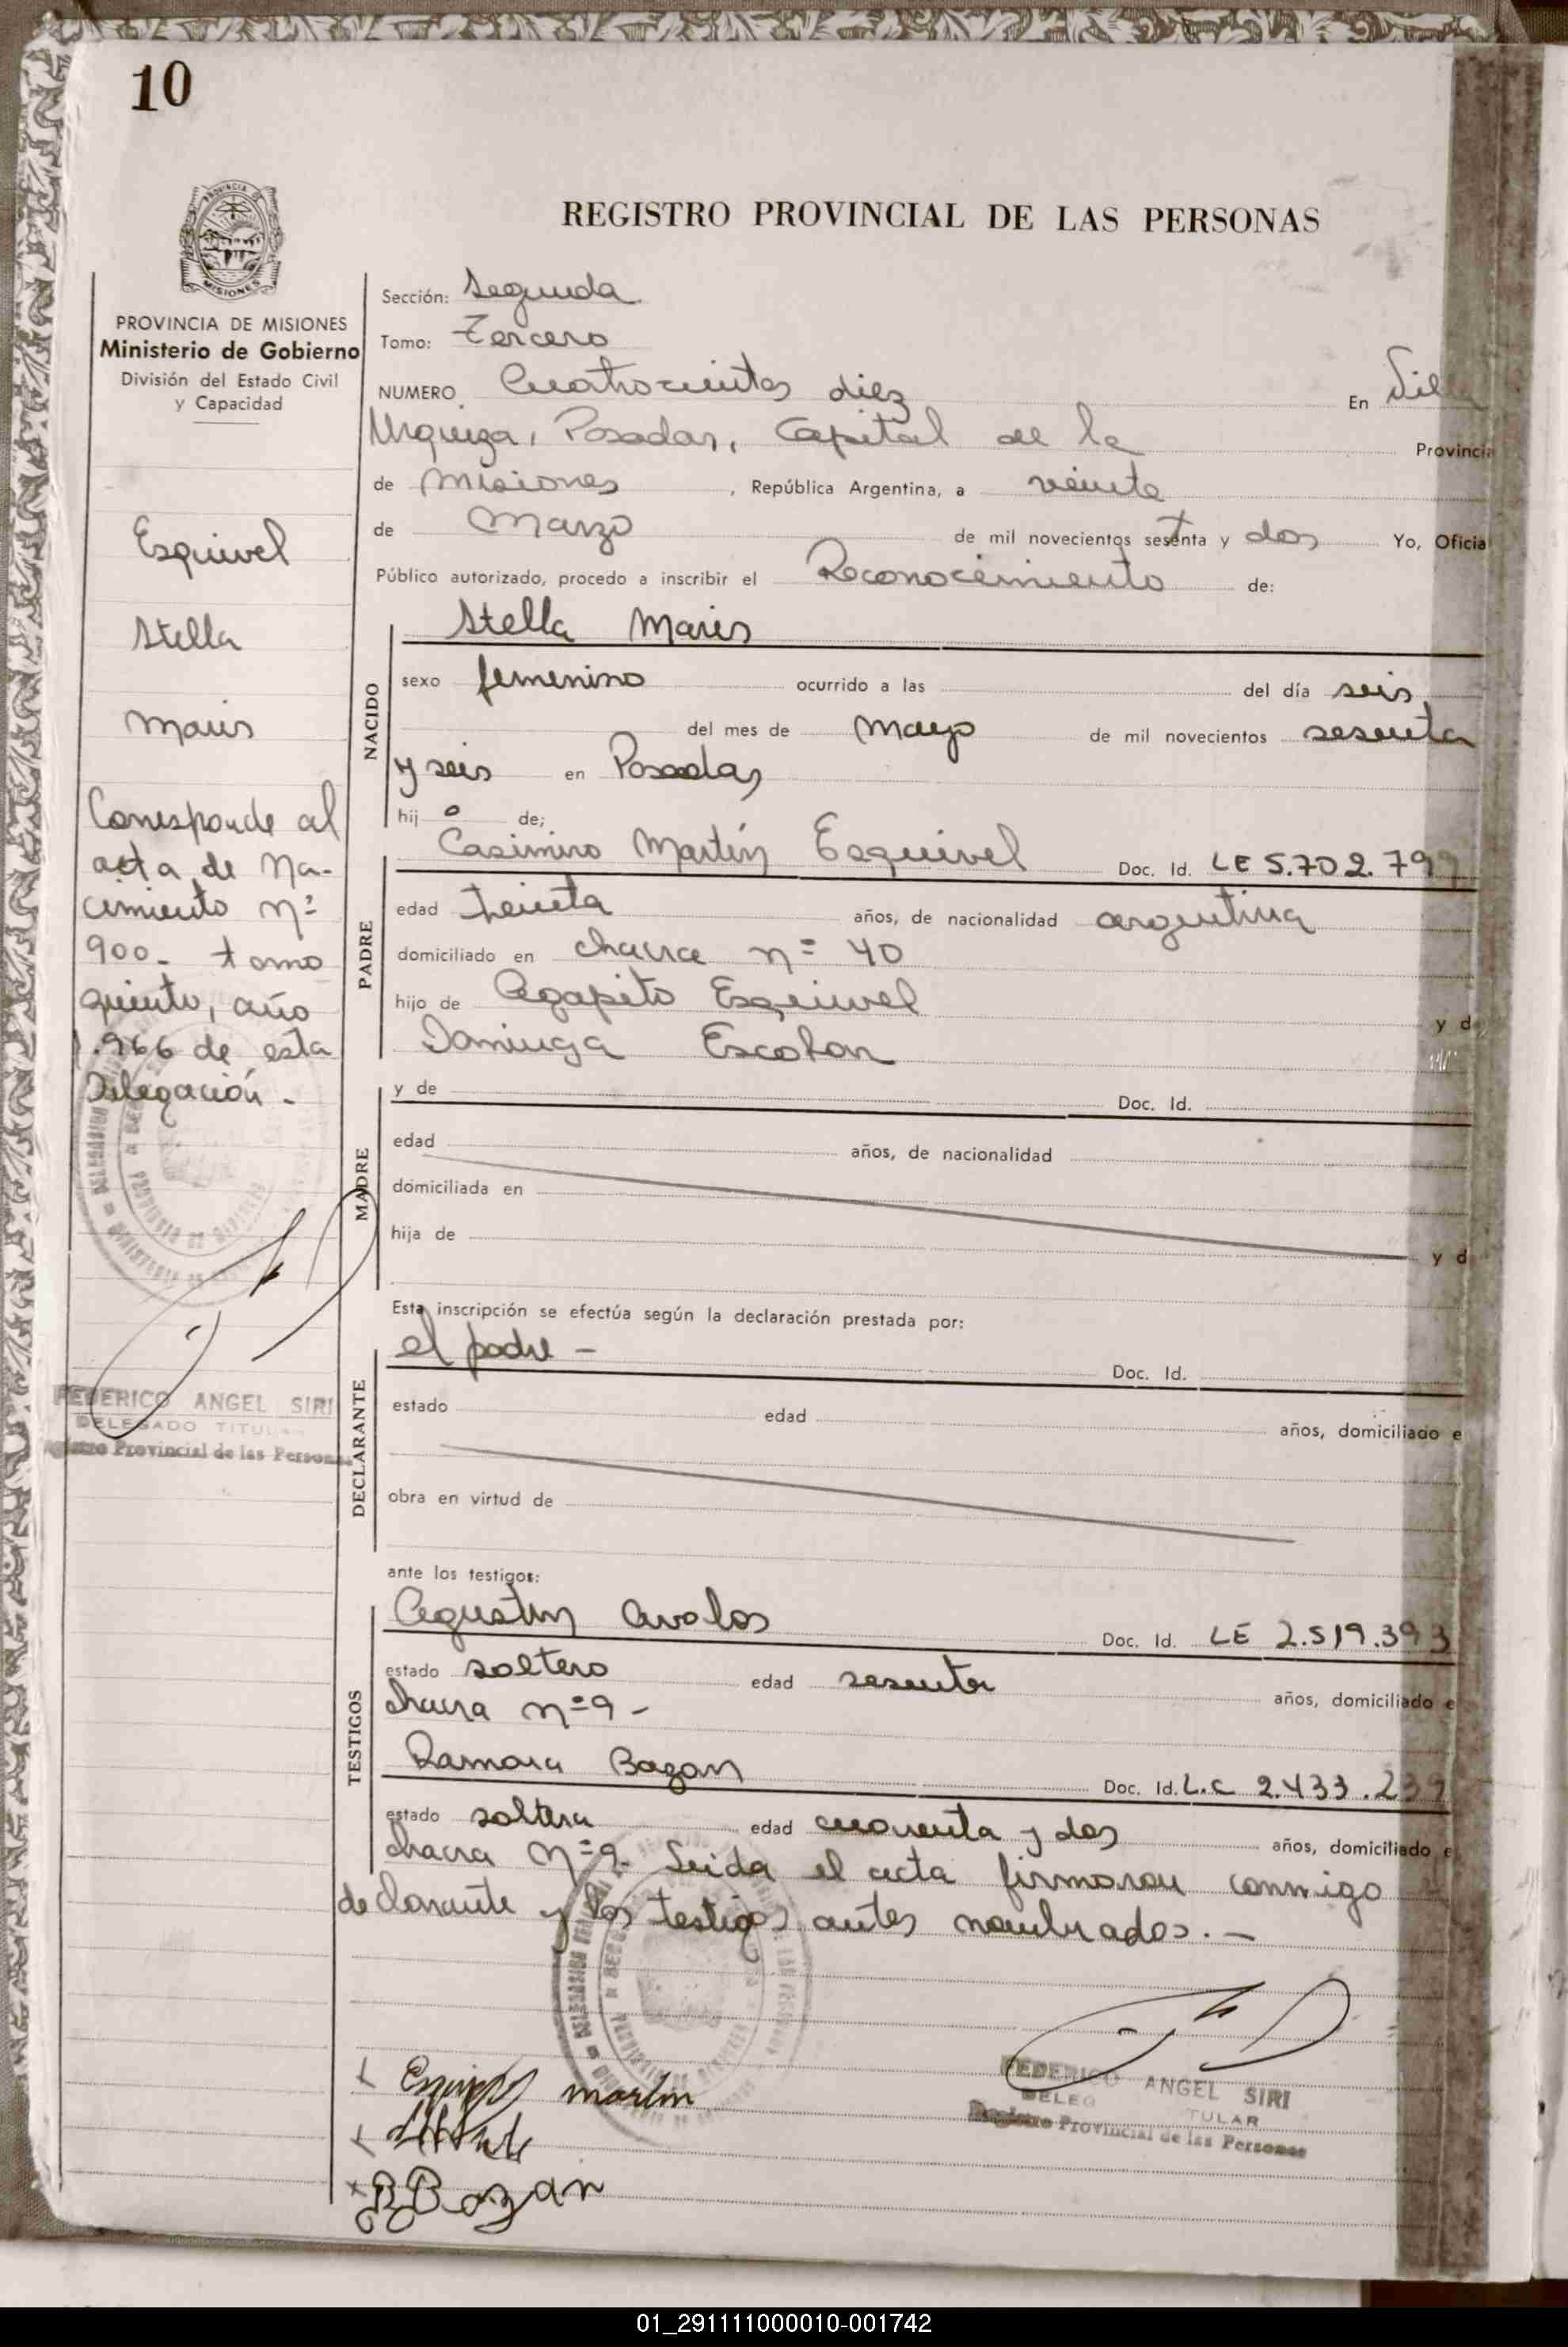 10
PROVINCIA DE MISIONES
REGISTRO PROVINCIAL DE LAS PERSONAS
PROVINCIA DE MISIONES
Ministerio de Gobierno
División del Estado Civil
y Capacidad
Sección: Segunda
Tomo: Tercero
NUMERO Cuatrocientos diez En Villa
Urquiza, Posadas, Capital de la Provincia
de Misiones, República Argentina, a veinte
de Marzo de mil novecientos sesenta y dos Yo, Oficia
Público autorizado, procedo a inscribir el Reconocimiento de:
Esquivel
Stella
Maris
Corresponde al
acta de Na-
cimiento nº
900- tomo
quinto, año
1.966 de esta
Delegación.-
FEDERICO ANGEL SIRI
DELEGADO TITULAR
Registro Provincial de las Personas
NACIDO
Stella Maris
sexo femenino ocurrido a las del día seis
del mes de mayo de mil novecientos sesenta
y seis en Posadas
hij o de;
PADRE
Casimiro Martín Esquivel Doc. Id. LE 5.702.799
edad treinta años, de nacionalidad argentina
domiciliado en chacra nº 40
hijo de Agapito Esquivel y d
Dominga Escobar
MADRE
y de Doc. Id.
edad años, de nacionalidad
domiciliada en
hija de y d
Esta inscripción se efectúa según la declaración prestada por:
DECLARANTE
el padre - Doc. Id.
estado edad años, domiciliado e
obra en virtud de
ante los testigos:
TESTIGOS
Agustin Avalos Doc. Id. LE 2.519.393
estado soltero edad sesenta años, domiciliado e
chacra nº 9-
Ramona Bazan Doc. Id. L.C 2.433.239
estado soltera edad cuarenta y dos años, domiciliado e
chacra nº 9. Leida el acta firmaron conmigo
declarante y los testigos antes nombrados.-
Esquivel martin
FEDERICO ANGEL SIRI
DELEG TULAR
Registro Provincial de las Personas
R Bazan
01_291111000010-001742